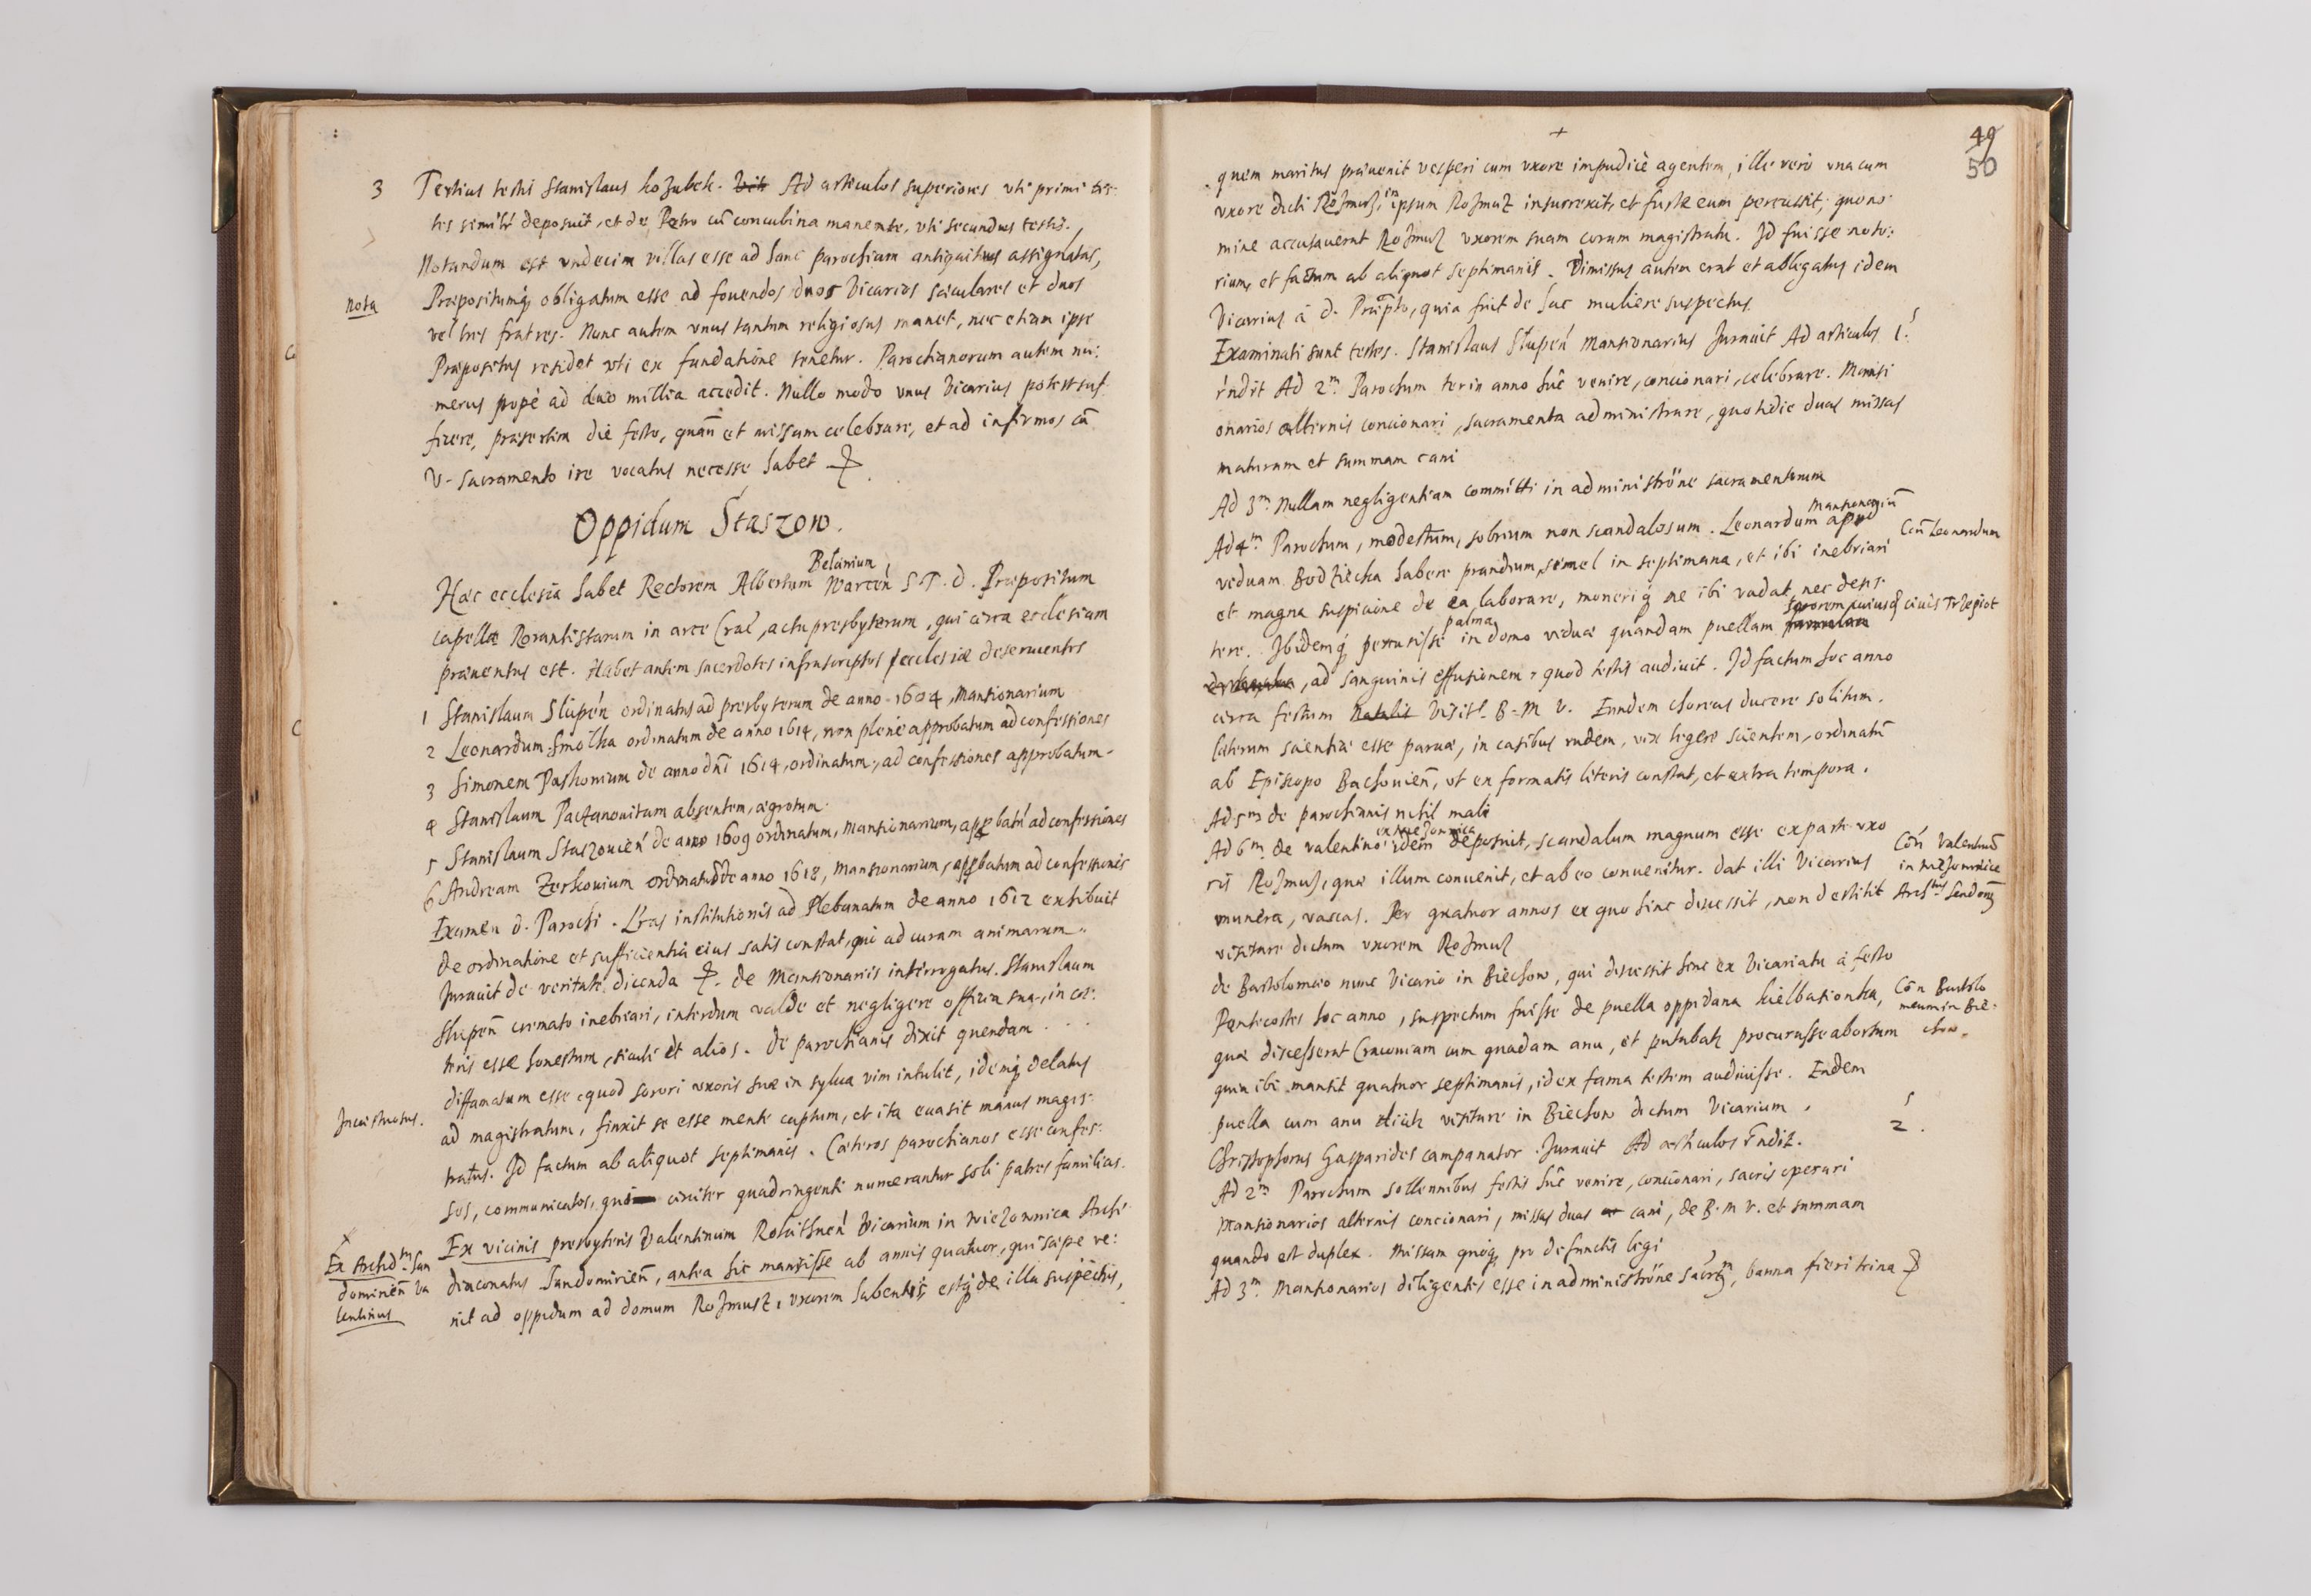 3 Tertius testis Stanislaus Kozubek. Ad articulos superiores vti primi tes:
tis simili deposuit, et de Petro cū concubina manente, vti secundus testis.
Notandum est vndecim villas esse ad hanc parochiam antiquitus assignatas,
nota
Præpositumq obligatum esse ad fouendos duos Vicarios sæculares et duos
vel tres fratres. Nunc autem vnus tantum religiosus manet, nec etiam ipse
Præpositus residet vti ex fundatione tenetur. Parochianorum autem nu:
merus propè ad duo millia accedit. Nullo modo vnus Vicarius potest suf
ficere, præsertim die festo, quañ et missam celebrare, et ad infirmos cū
V. sacramento ire vocatus necesse habet
Oppidum Staszow.
Belanium
Hæc ecclesia habet Rectorem Albertum Warceń S T. d. Præpositum
capellæ Rorantistarum in arce Crac, actu presbyterum, qui circa ecclesiam
præuentus est. Habet autem sacerdotes infrascriptos ecclesiæ deseruentes
1 Stanislaum Slupeń ordinatus ad presbyterum de anno 1604, Mansionarium
2 Leonardum Smolka ordinatum de anno 1614, non plenè approbatum ad confessiones
3 Simonem Paskonium de anno dñi 1614, ordinatum, ad confessiones approbatum.
4 Stanislaum Pactanouitam absentem, ægrotum.
5 Stanislaum Staszouień de anno 1609 ordinatum, Mansionarium, appbatū ad confessiones
6 Andream Zerkouium ordinatū de anno 1618, Mansionarium, appbatum ad confessiones
Examen d. Parochi. Lras institutionis ad Plebanatum de anno 1612 exhibuit
de ordinatione et sufficientia eius satis constat, qui ad curam animarum.
Jurauit de veritate dicenda. de Mansionariis interrogatus. Stanislaum
Slupeñ cremato inebriari, interdum valde et negligere officia sua, in cæ:
teris esse honestum, sicuti et alios. de parochianis dixit quendam . . .
diffamatum esse quod sorori vxoris suæ in sylua vim intulit, idemq delatus
Incæstuosus.
ad magistratum, finxit se esse mente captum, et ita euasit manus magis:
tratus. Id factum ab aliquot septimanis. Cæteros parochianos esse confes:
sos, communicatos, circiter quadringenti numerantur soli patres familias.
Ex vicinis presbyteris Valentinum Vicarium in Wiezownica Archi
Ex Archid. San
dominień Va
lentinus
diaconatus Sandomirień, antea hic mansisse ab annis quatuor, qui sæpe ve:
nit ad oppidum ad domum Rozmusz, vxorem habentis estq de illa suspectus,
49
50
quem maritus præuenit vesperi cum vxore impudicè agentem, ille verò vna cum
vxore dicti Rozmus, in ipsum Rozmuz insurrexit, et fuste eum percussit, quo no
mine accusauerat Rozmus vxorem suam coram magistratu. Id fuisse noto:
rium, et factum ab aliquot septimanis. Dimissus autem erat et ablegatus idem
Vicarius à d. Præpto, quia fuit de hac muliere suspectus
Examinati sunt testes. Stanislaus Slupeń Mansionarius Jurauit Ad articulos
1.
rñdit Ad 2m. Parochum ter in anno huc venire, concionari, celebrare. Mansi
onarios alternis concionari, sacramenta administrare, quotidie duas missas
maturam et summam cani
Ad 3m. Nullam negligentiam committi in administrone sacramentorum
Mansionariū
Ad 4m. Parochum, modestum, sobrium non scandalosum. Leonardum apud
Con Leonardum
viduam Bodziecka habere prandium, semel in septimana, et ibi inebriari
et magna suspicione de ea laborare, moneriq ne ibi vadat, nec desis:
palma
sororem cuiusq ciuis Trzepiot
tere. Ibidemq percussisse in domo viduæ quandam puellam
, ad sanguinis effusionem, quod testis audiuit. Id factum hoc anno
circa festum Natalis Visit. B. M V. Eundem choreas ducere solitum.
cæterum scientiæ esse paruæ, in casibus rudem, vix legere scientem, ordinatū
ab Episcopo Bachouień, vt ex formatis literis constat, et extra tempora.
Ad 5m de parochianis nihil mali
ex Wiezownica
Ad 6m. de Valentino idem deposuit, scandalum magnum esse ex parte vxo
ris Rozmus, quæ illum conuenit, et ab eo conuenitur. dat illi Vicarius
Coń Valentinū
in Wiezownice
munera, vaccas. Per quatuor annos ex quo hinc discessit, non destitit
visitare dictum vxorem Rozmus
de Bartolomæo nunc Vicario in Biechow, qui discessit hinc ex Vicariatu à festo
Pentecostes hoc anno, suspectum fuisse de puella oppidana Kielbasionka,
Coñ Bartolo
meum in Bie:
chow.
quæ discesserat Cracouiam cum quadam anu, et putabatr procurasse abortum
quia ibi mansit quatuor septimanis, id ex fama testem audiuisse. Eadem
puella cum anu dicitr visitare in Biechow dictum Vicarium.
Christophorus Gasparides campanator. Jurauit Ad articulos rñdit.
2.
Ad 2m Parochum sollennibus festis huc venire, concionari, sacris operari
Mansionarios alternis concionari, missas duas cani, de B. M V. et summam
quando est duplex. Missam quoq pro defunctis legi
Ad 3m. Mansionarios diligentes esse in administrone sacrm, banna fieri trina